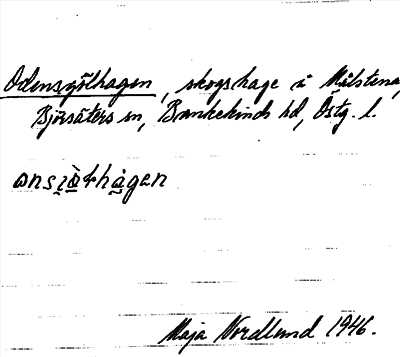 Odensjölhagen, skogshage å Målstena,
Björsäters sn, Bankekinds hd, Östg. l.
Maja Nordlund 1946.